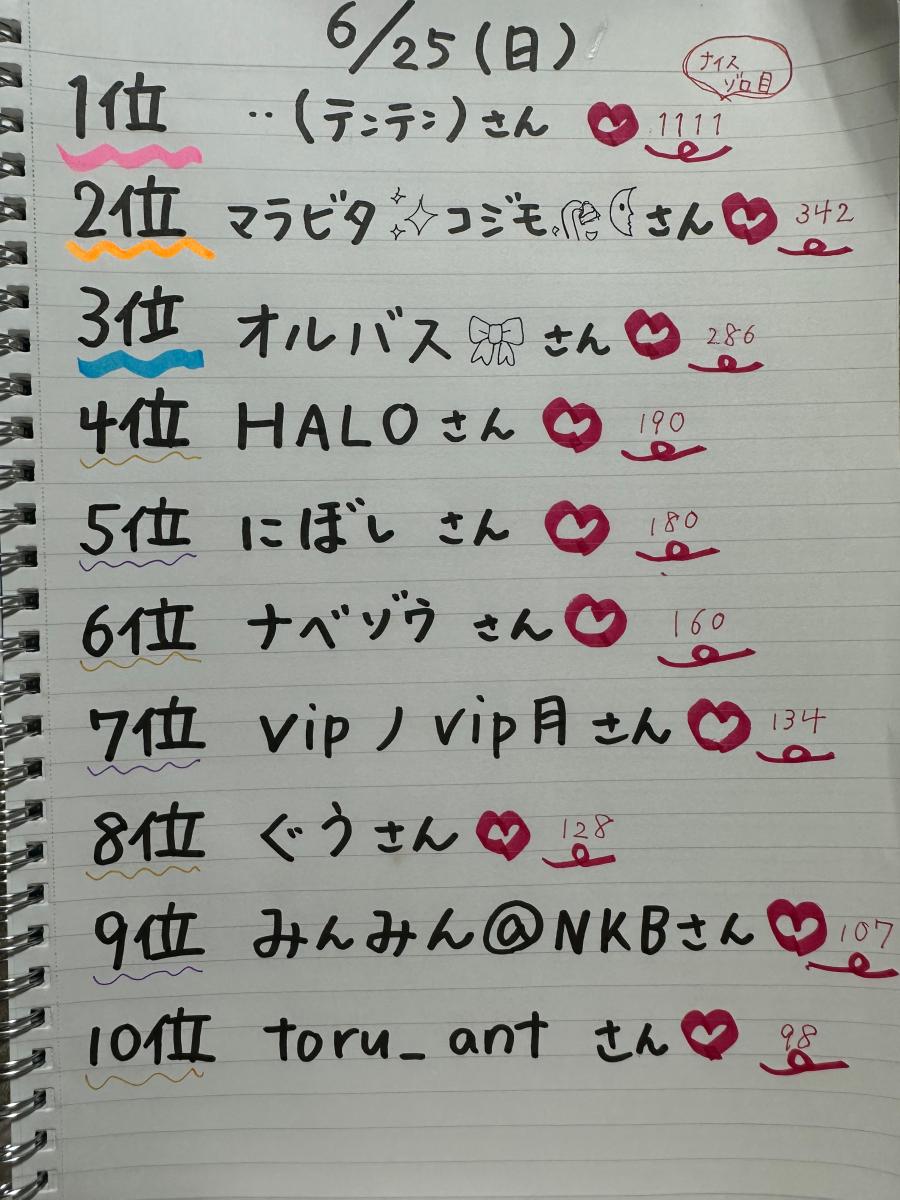 6/25(日)
ナイス
ゾロ目
1位 ‥(テンテン)さん 1111
2位 マラビタ✨コジモ さん 342
3位 オルバス🎀さん 286
4位 HALOさん 190
5位 にぼし さん 180
6位 ナベゾウ さん 160
7位 vipノvip月 さん 134
8位 ぐうさん 128
9位 みんみん@NKBさん 107
10位 toru_ant さん 98